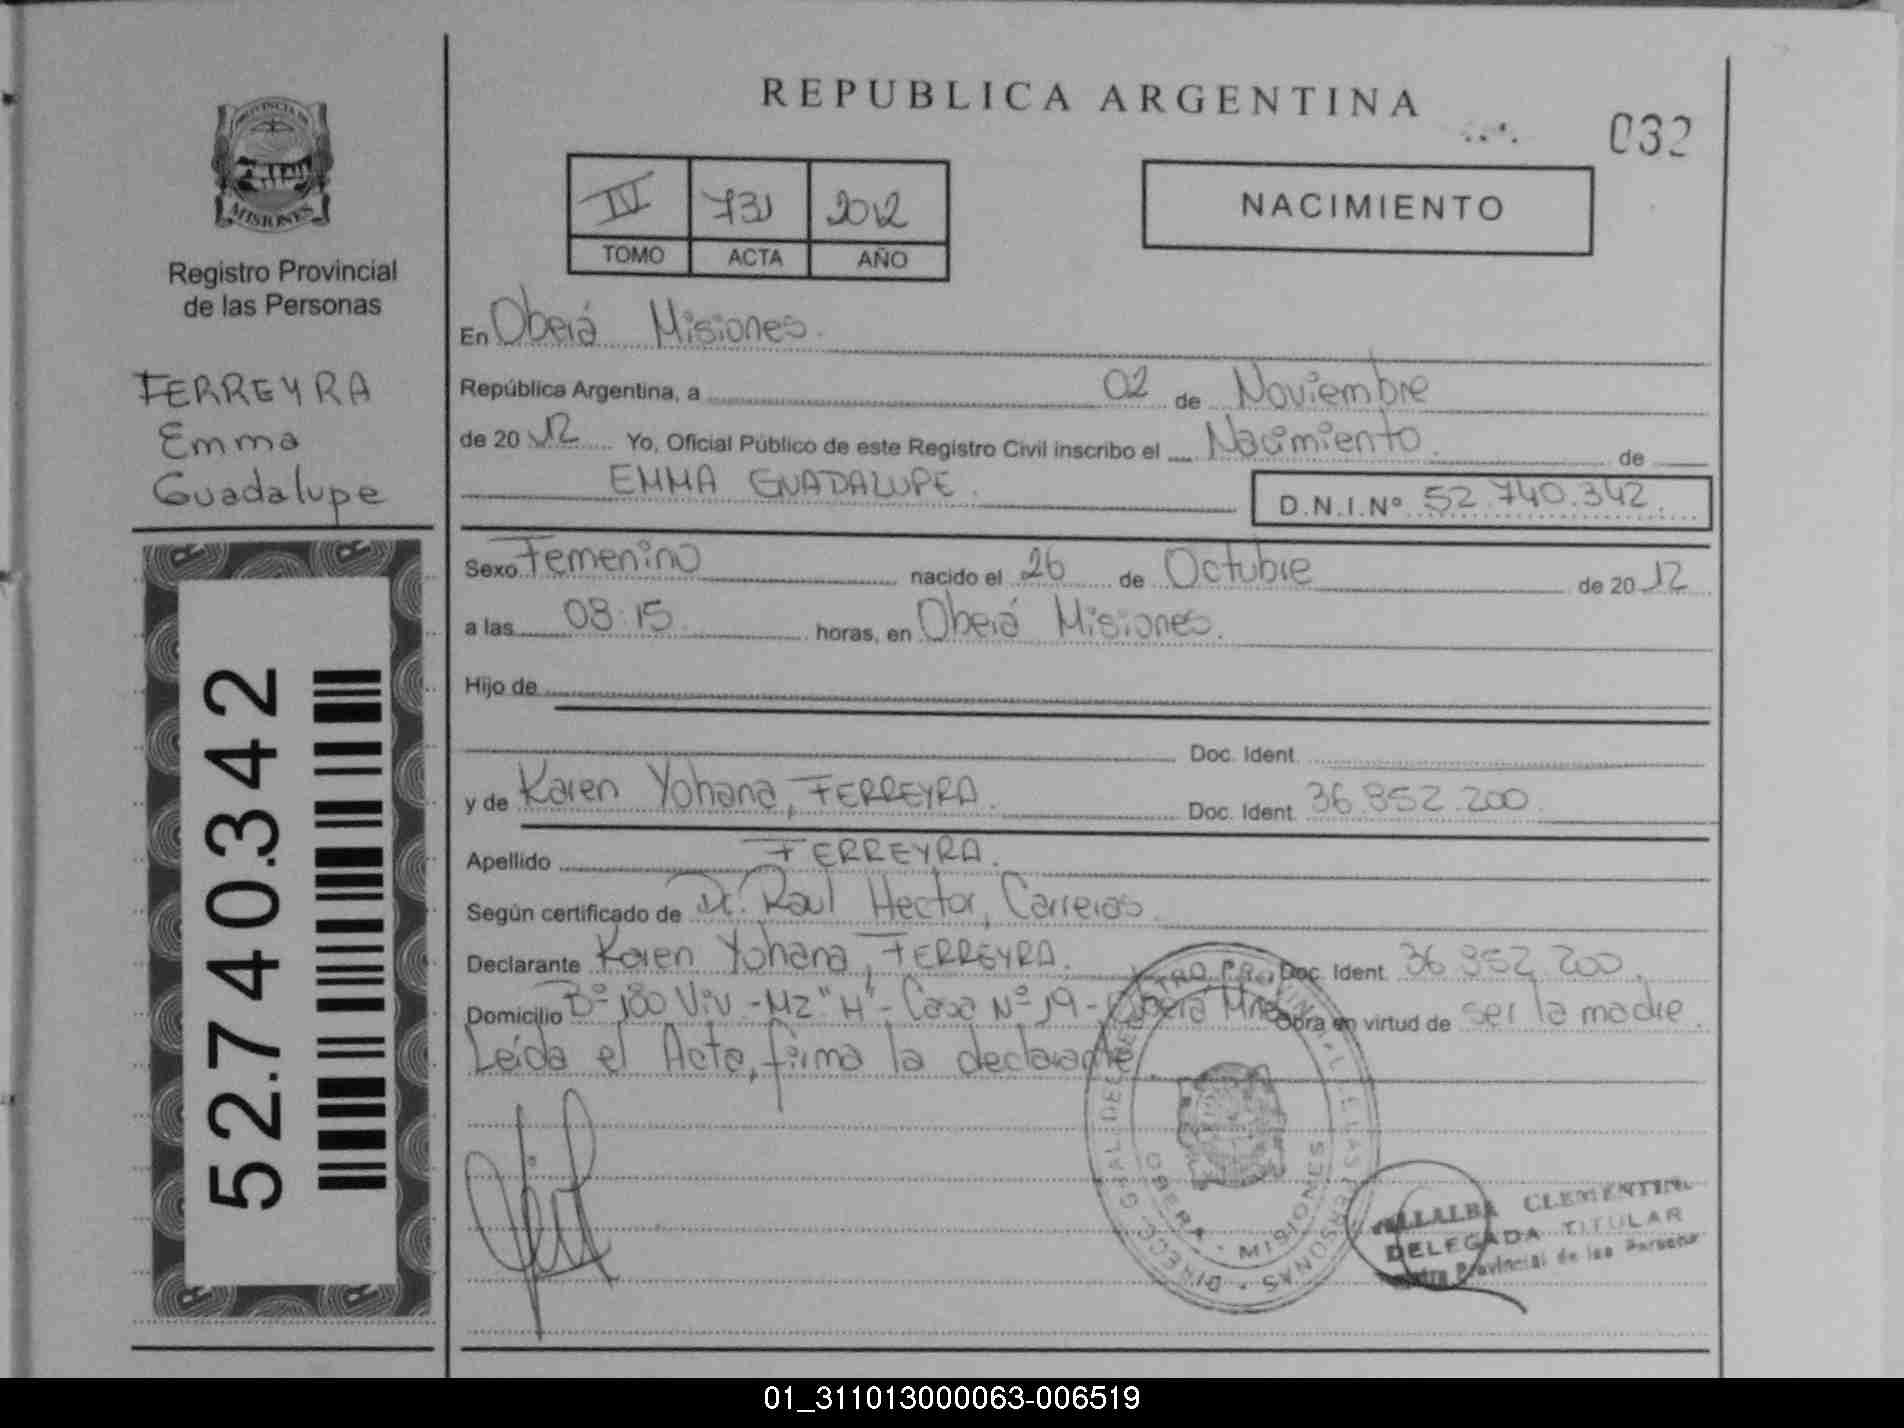 REPUBLICA ARGENTINA
032
PROVINCIA DE
MISIONES
Registro Provincial
de las Personas
FERREYRA
Emma
Guadalupe
52.740.342
IV 731 2012
TOMO ACTA AÑO
NACIMIENTO
En Oberá Misiones.
República Argentina, a 02 de Noviembre
de 2012 Yo, Oficial Público de este Registro Civil inscribo el Nacimiento de
EMMA GUADALUPE. D.N.I.Nº 52.740.342.
Sexo Femenino nacido el 26 de Octubre de 2012
a las 08:15 horas, en Oberá Misiones.
Hijo de
Doc. Ident.
y de Karen Yohana, FERREYRA. Doc. Ident. 36.952.200.
Apellido FERREYRA.
Según certificado de Dr. Raul Hector, Carreras.
Declarante Karen Yohana, FERREYRA. Doc. Ident. 36.952.200.
Domicilio Bº 180 Viv - Mz "H" - Casa Nº 19 - Oberá Mnes Obra en virtud de ser la madre.
Leída el Acta, firma la declarante.
OBERA - MISIONES
VILLALBA CLEMENTINA
DELEGADA TITULAR
Provincial de las Personas
01_311013000063-006519